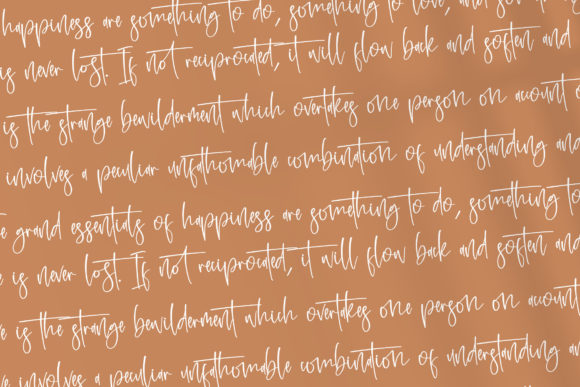 happiness are something to do, something to love, and
is never lost. If not reciprocated, it will flow back and soften and
is the strange bewilderment which overtakes one person on account
involves a peculiar unfathomable combination of understanding and
grand essentials of happiness are something to do, something to
is never lost. If not reciprocated, it will flow back and soften and
is the strange bewilderment which overtakes one person on account
involves a peculiar unfathomable combination of understanding